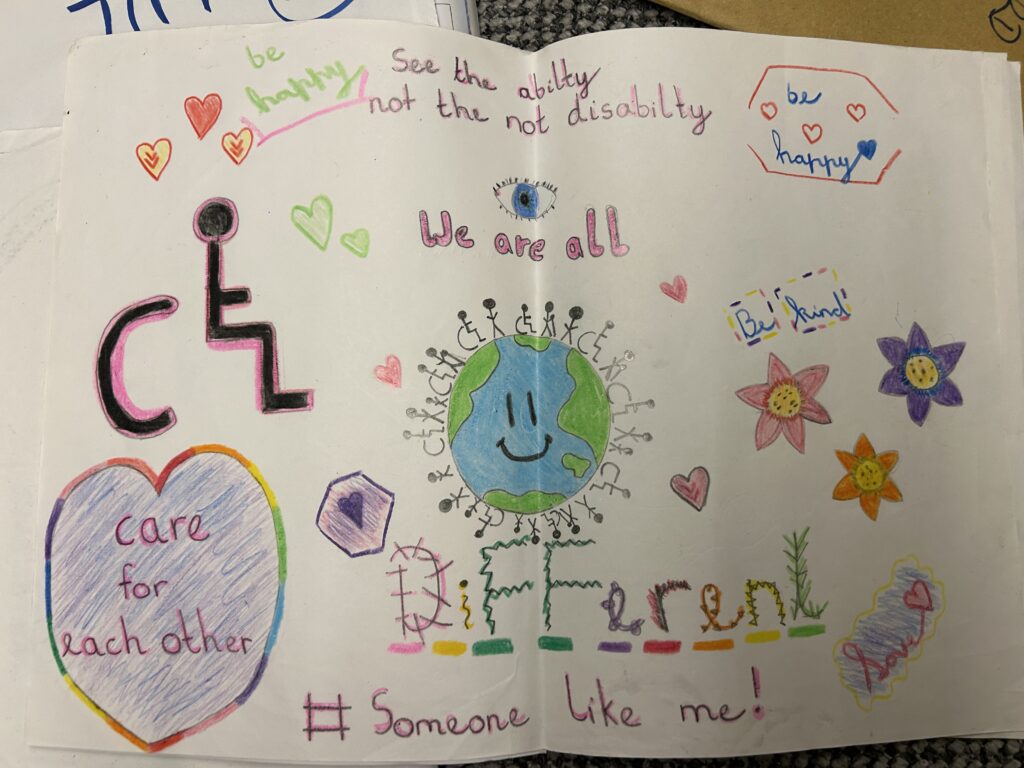 be
happy
See the abilty
not the not disabilty
be
happy
We are all
Be kind
care
for
each other
DiFFerent
Love
# Someone like me!